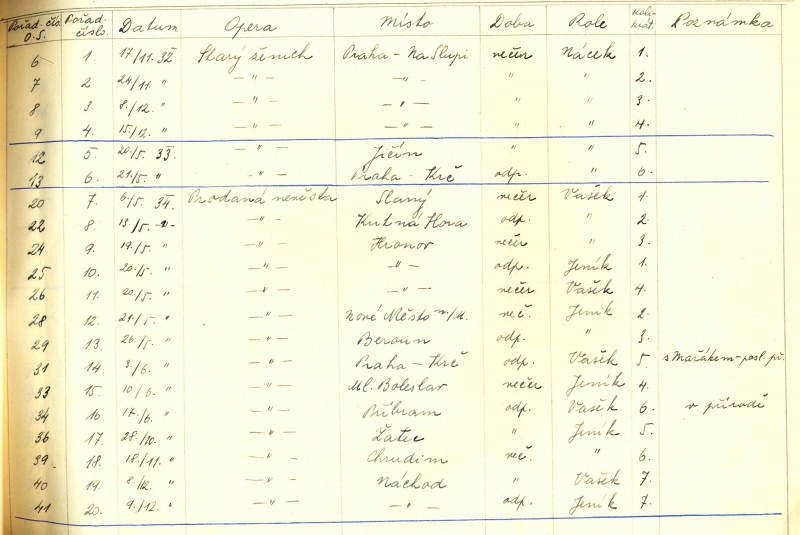 Pořad. čís. O.S. Pořad. číslo. Datum Opera Místo Doba Role Koli- krát. Poznámka
6 1. 17/11. 32 Starý ženich Praha - Na Slupi večer Nácek 1.
7 2. 24/11. " — " — — " — " " 2.
8 3. 8./12. " — " — — " — " " 3.
9 4. 15./12. " — " — — " — " " 4.
12 5. 20./5. 33. — " — Jičín " " 5.
13 6. 21./5. " — " — Praha - Krč odp. " 6.
20 7. 6/5. 34. Prodaná nevěsta Slaný večer Vašek 1.
22 8. 13./5. -"- — " — Kutná Hora odp. " 2.
24 9. 19./5. " — " — Hronov večer " 3.
25 10. 20./5. " — " — — " — odp. Jeník 1.
26 11. 20/5. " — " — — " — večer Vašek 4.
28 12. 21./5. " — " — Nové Město n/M. več. Jeník 2.
29 13. 26./5. " — " — Beroun odp. " 3.
31 14. 3./6. " — " — Praha - Krč odp. Vašek 5. s Mařákem - posl. př.
33 15. 10./6. " — " — Ml. Boleslav večer Jeník 4.
34 16. 17./6. " — " — Příbram odp. Vašek 6. v přírodě
36 17. 28./10. " — " — Žatec " Jeník 5.
39 18. 18./11. " — " — Chrudim več. " 6.
40 19. 8/12. " — " — Náchod " Vašek 7.
41 20. 9./12. " — " — — " — odp. Jeník 7.